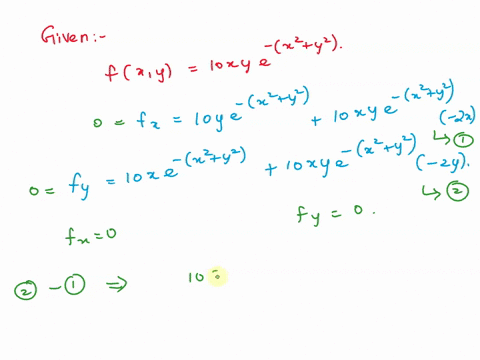 Given:-
f(x,y) = 10xy e^{-(x²+y²)}.
0 = fₓ = 10y e^{-(x²+y²)} + 10xy e^{-(x²+y²)} (-2x)
↳ ①
0 = f_y = 10x e^{-(x²+y²)} + 10xy e^{-(x²+y²)} (-2y).
↳ ②
fₓ = 0 f_y = 0.
② - ① ⇒ 10